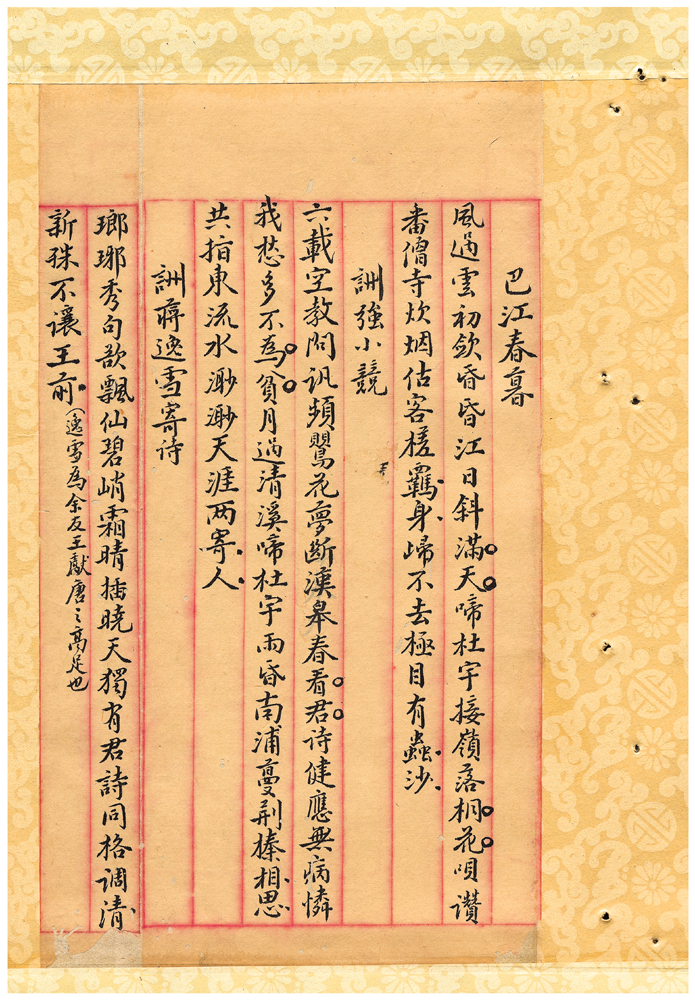 巴江春暮
風過雲初斂昏昏江日斜滿天啼杜宇接嶺落桐花唄讚
番僧寺炊烟估客槎羈身歸不去極目有蟲沙
訓強小競
六載空教問訊頻鶯花夢斷漢皋春看君诗健應無病憐
我愁多不為貧月過清溪啼杜宇雨昏南浦蔓荆榛相思
共指東流水渺渺天涯兩寄人
訓蔣逸雪寄诗
瑯琊秀句欲飄仙碧峭霜晴插曉天獨有君詩同格调清
新殊不讓王前（逸雪為余友王獻唐之高足也